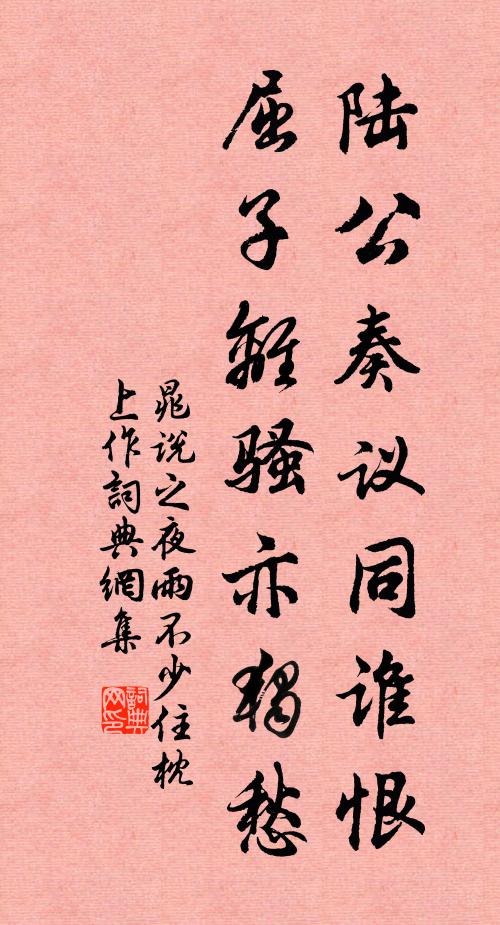 陆公奏议同谁恨
屈子離骚亦独愁
晁说之夜雨不少住枕
上作詞典網集
詞典网印